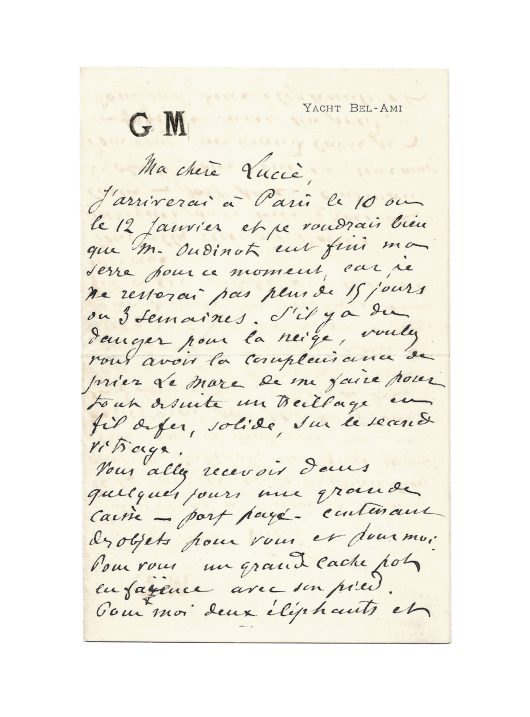 YACHT BEL-AMI
GM
Ma chère Lucie,
J'arriverai à Paris le 10 ou
le 12 Janvier et je voudrais bien
que M. Oudinot eut fini ma
serre pour ce moment, car je
ne resterai pas plus de 15 jours
ou 3 semaines. S'il y a du
danger pour la neige, voulez
vous avoir la complaisance de
prier Le Mare de me faire poser
tout desuite un treillage en
fil de fer, solide, sur le second
vitrage.
Vous allez recevoir dans
quelques jours une grande
caisse – port payé – contenant
des objets pour vous et pour moi.
Pour vous un grand cache pot
en faïence avec son pied.
Pour moi deux éléphants et